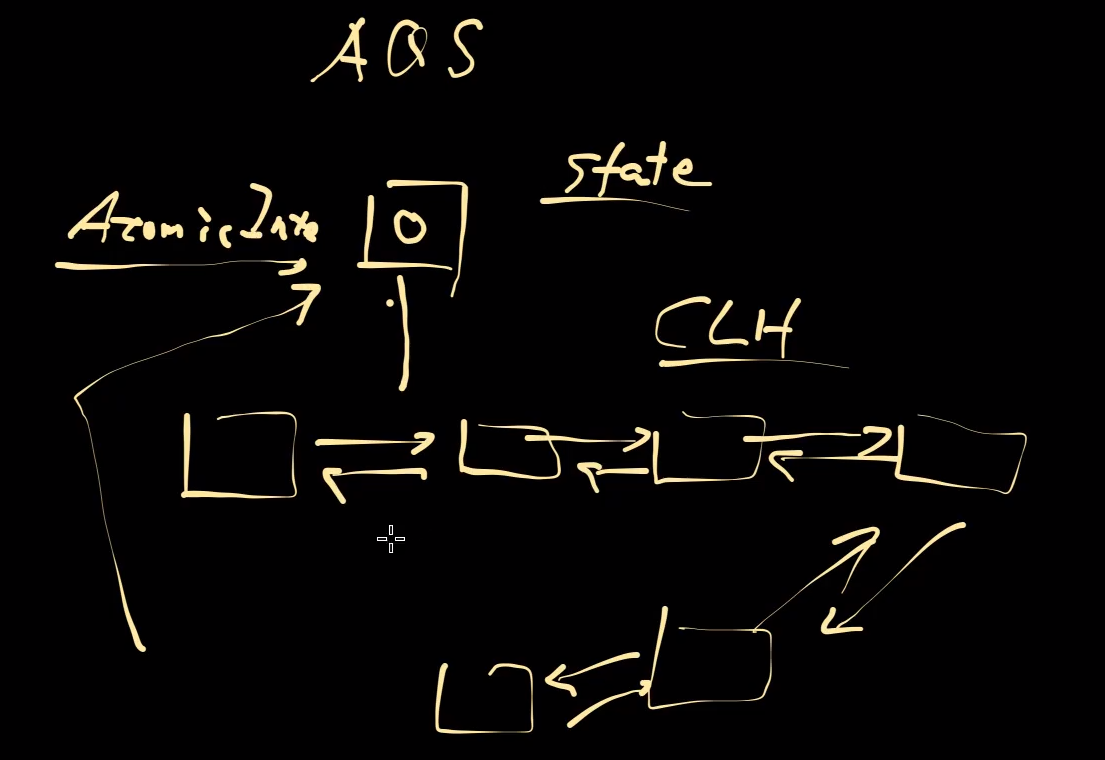 AQS
state
AtomicInte
0
CLH